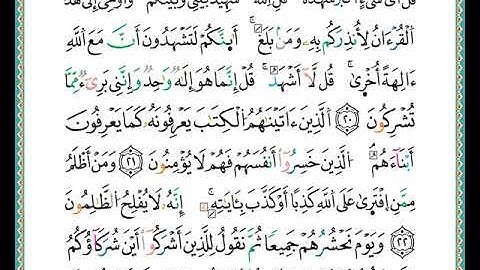 قُلْ أَيُّ شَيْءٍ أَكْبَرُ شَهَٰدَةً قُلِ اللَّهُ شَهِيدُۢ بَيْنِي وَبَيْنَكُمْ وَأُوحِيَ إِلَيَّ هَٰذَا
اَ۬لْقُرْءَانُ لِأُنذِرَكُم بِهِۦ وَمَنۢ بَلَغَ أَئِنَّكُمْ لَتَشْهَدُونَ أَنَّ مَعَ اَ۬للَّهِ
ءَالِهَةً أُخْر۪ىٰ قُل لَّا أَشْهَدُ قُلْ إِنَّمَا هُوَ إِلَٰهٞ وَٰحِدٞ وَإِنَّنِي بَرِيٓءٞ مِّمَّا
تُشْرِكُونَ ٢٠ اَ۬لذِينَ ءَاتَيْنَٰهُمُ اُ۬لْكِتَٰبَ يَعْرِفُونَهُۥ كَمَا يَعْرِفُونَ
أَبْنَآءَهُمُ اُ۬لذِينَ خَسِرُوٓاْ أَنفُسَهُمْ فَهُمْ لَا يُؤْمِنُونَ ٢١ وَمَنْ أَظْلَمُ
مِمَّنِ اِ۪فْتَر۪ىٰ عَلَى اَ۬للَّهِ كَذِبًا أَوْ كَذَّبَ بِـَٔايَٰتِهِۦٓ إِنَّهُۥ لَا يُفْلِحُ اُ۬لظَّٰلِمُونَ
٢٢ وَيَوْمَ نَحْشُرُهُمْ جَمِيعًا ثُمَّ نَقُولُ لِلذِينَ أَشْرَكُوٓاْ أَيْنَ شُرَكَآؤُكُمُ